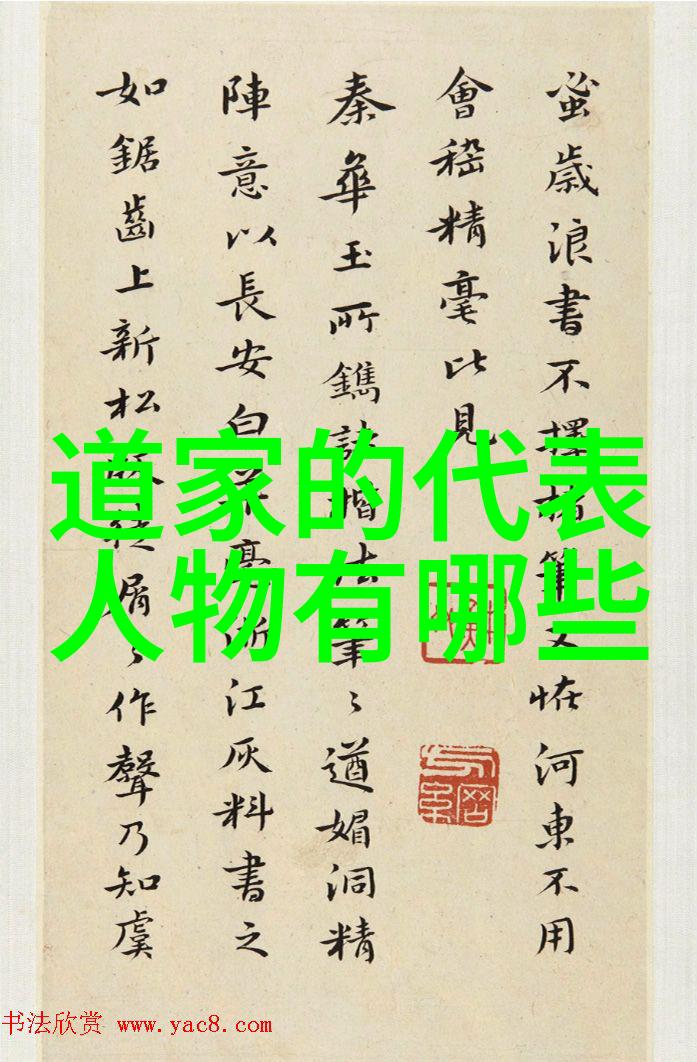 道家的代表
人物有哪些
蚤歲浪書不擇筆又恠河東不用
會嵇精毫比見
秦華玉所鐫楷法筆〻遒媚洞精
陣意以長安白毫浙江灰料書之
如鋸齒上新松屑〻作聲乃知虞
书法欣赏 www.yac8.com